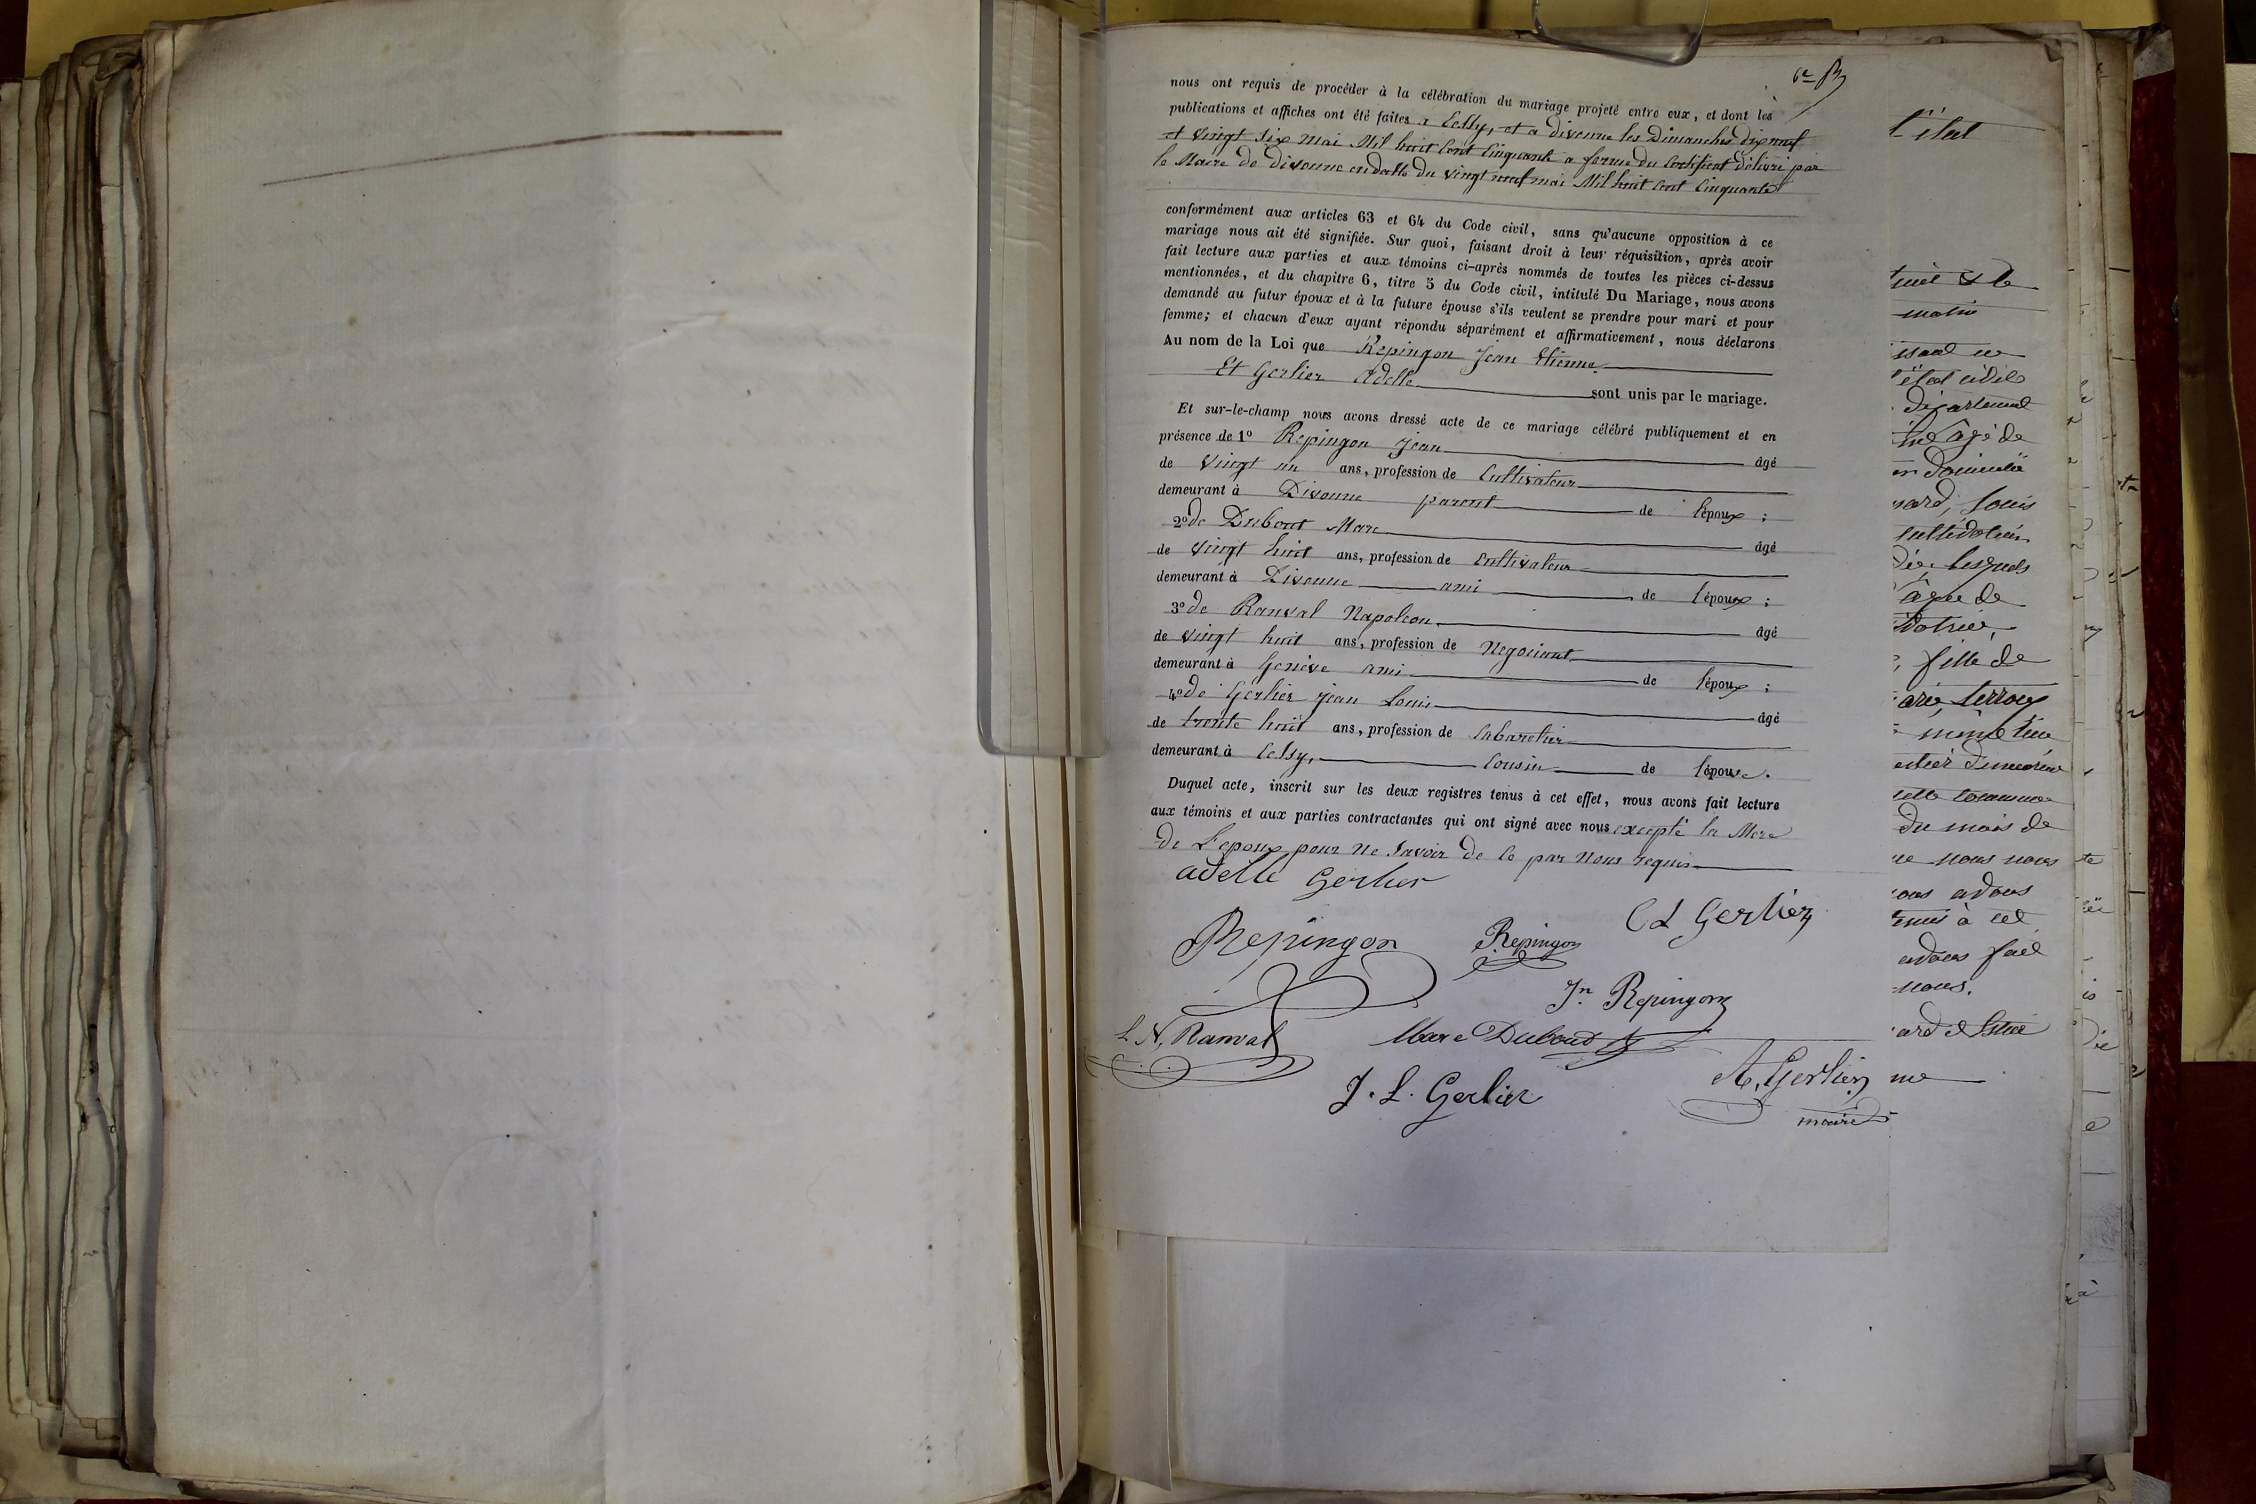 nous ont requis de procéder à la célébration du mariage projeté entre eux, et dont les
publications et affiches ont été faites a Cessy, et a divonne les Dimanches dix neuf
et vingt six mai Mil huit Cent Cinquante a forme du Certificat délivré par
le Maire de divonne en datte du vingt neuf mai Mil huit Cent Cinquante
conformément aux articles 63 et 64 du Code civil, sans qu'aucune opposition à ce
mariage nous ait été signifiée. Sur quoi, faisant droit à leur réquisition, après avoir
fait lecture aux parties et aux témoins ci-après nommés de toutes les pièces ci-dessus
mentionnées, et du chapitre 6, titre 5 du Code civil, intitulé Du Mariage, nous avons
demandé au futur époux et à la future épouse s'ils veulent se prendre pour mari et pour
femme; et chacun d'eux ayant répondu séparément et affirmativement, nous déclarons
Au nom de la Loi que Repingon Jean Etienne
Et Gerlier Adelle sont unis par le mariage.
Et sur-le-champ nous avons dressé acte de ce mariage célébré publiquement et en
présence de 1º Repingon Jean âgé
de vingt un ans, profession de Cultivateur
demeurant à Divonne parent de l'époux ;
2º de Dubout Marc âgé
de vingt huit ans, profession de Cultivateur
demeurant à Divonne ami de l'époux ;
3º de Ranval Napoleon âgé
de vingt huit ans, profession de Negociant
demeurant à Genève ami de l'époux ;
4º de Gerlier Jean Louis âgé
de trente huit ans, profession de Cabaretier
demeurant à Cessy, Cousin de l'épouse.
Duquel acte, inscrit sur les deux registres tenus à cet effet, nous avons fait lecture
aux témoins et aux parties contractantes qui ont signé avec nous excepté la Mere
de L'epoux pour ne savoir de ce par nous requis
adelle Gerlier
C L Gerlier
Repingon Repingon
Jn Repingon
L. N. Ranval Marc Dubout
A. Gerlier
J. L. Gerlier
maire
l'état
matin
l'état civil
département
âgé de
Louis
cultivateur
lesquels
âgée de
fille de
du mois de
nous nous
avons
à cet
avons fait
nous.